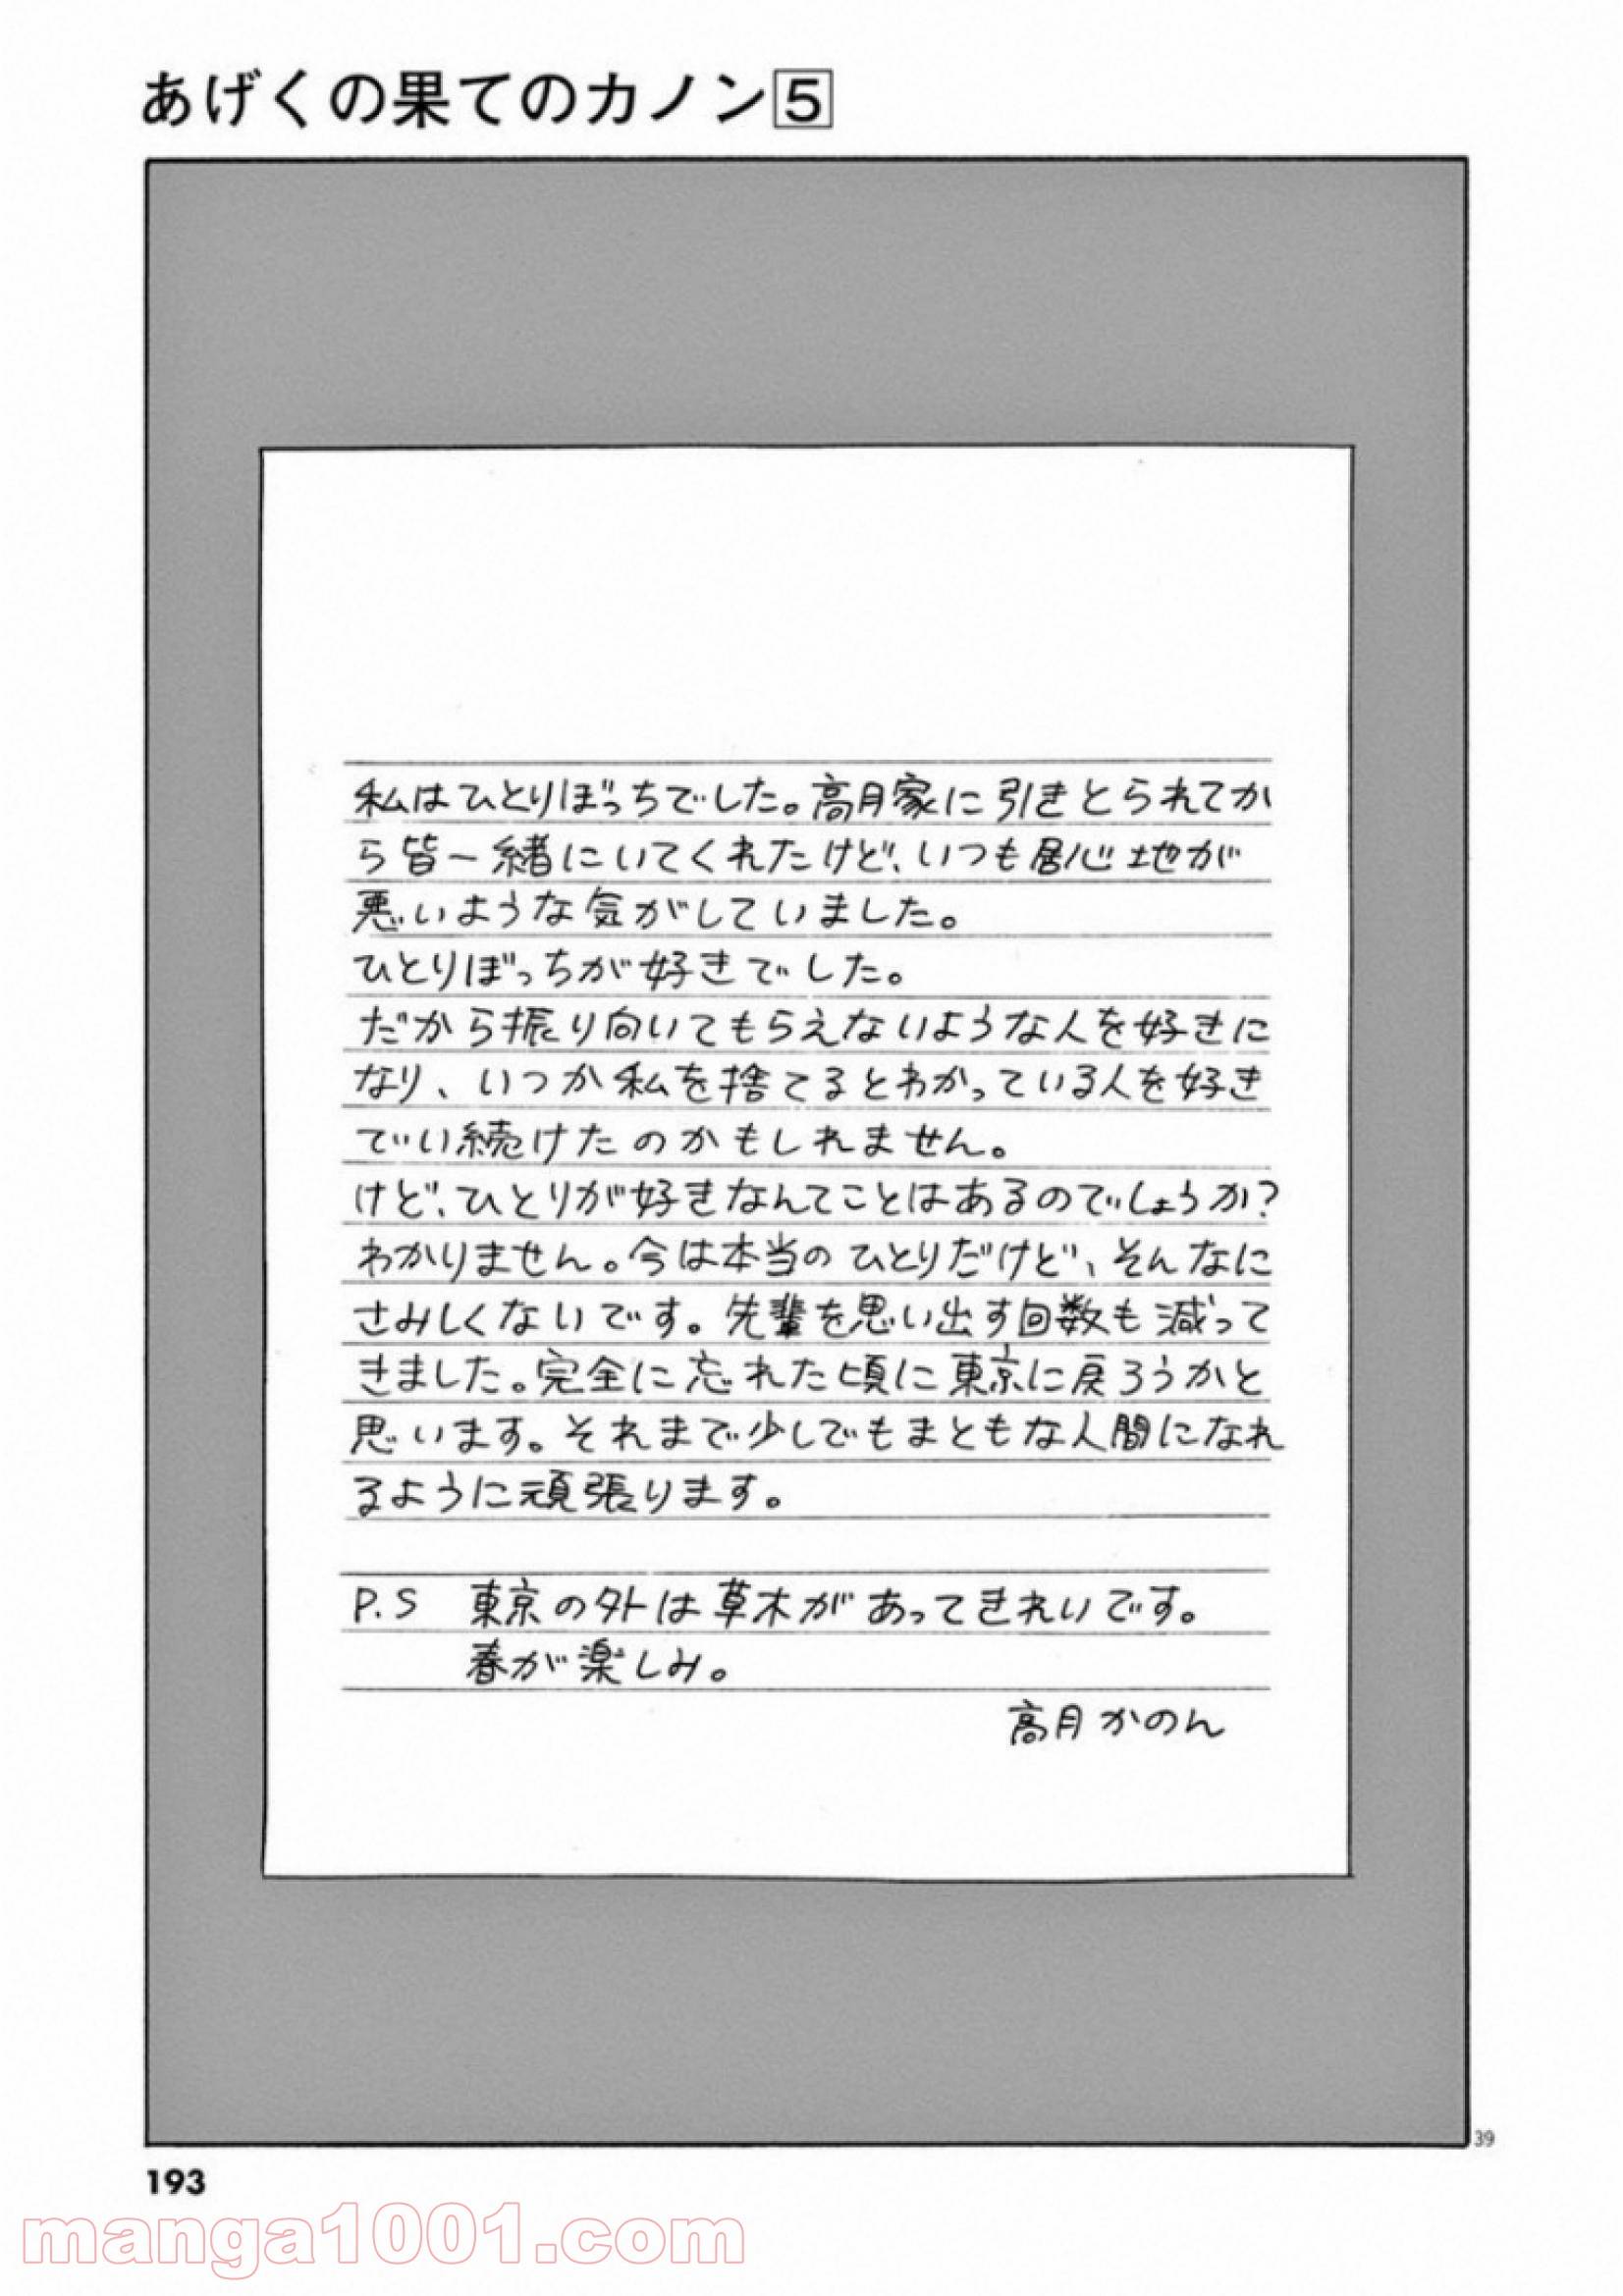 あげくの果てのカノン5
私はひとりぼっちでした。高月家に引きとられてか
ら皆一緒にいてくれたけど、いつも居心地が
悪いような気がしていました。
ひとりぼっちが好きでした。
だから振り向いてもらえないような人を好きに
なり、いつか私を捨てるとわかっている人を好き
でい続けたのかもしれません。
けど、ひとりが好きなんてことはあるのでしょうか?
わかりません。今は本当のひとりだけど、そんなに
さみしくないです。先輩を思い出す回数も減って
きました。完全に忘れた頃に東京に戻ろうかと
思います。それまで少しでもまともな人間になれ
るように頑張ります。
P.S 東京の外は草木があってきれいです。
春が楽しみ。
高月かのん
39
193
manga1001.com